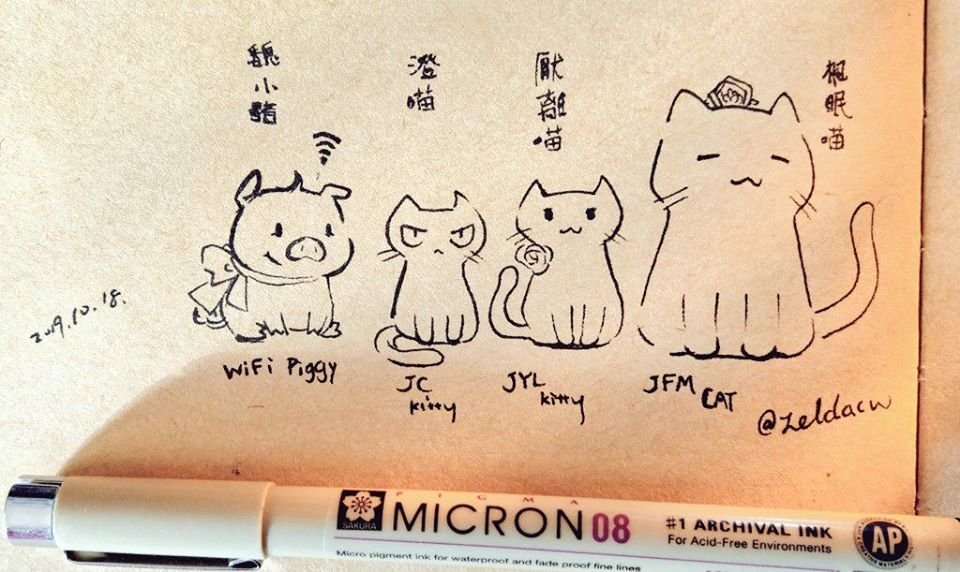 魏小豬
澄喵
厭離喵
楓眠喵
2019.10.18.
WiFi Piggy
JC
kitty
JYL
kitty
JFM
CAT
@zeldacw
SAKURA
PIGMA
MICRON 08
#1 ARCHIVAL INK
For Acid-Free Environments
AP
Micro pigment ink for waterproof and fade proof fine lines